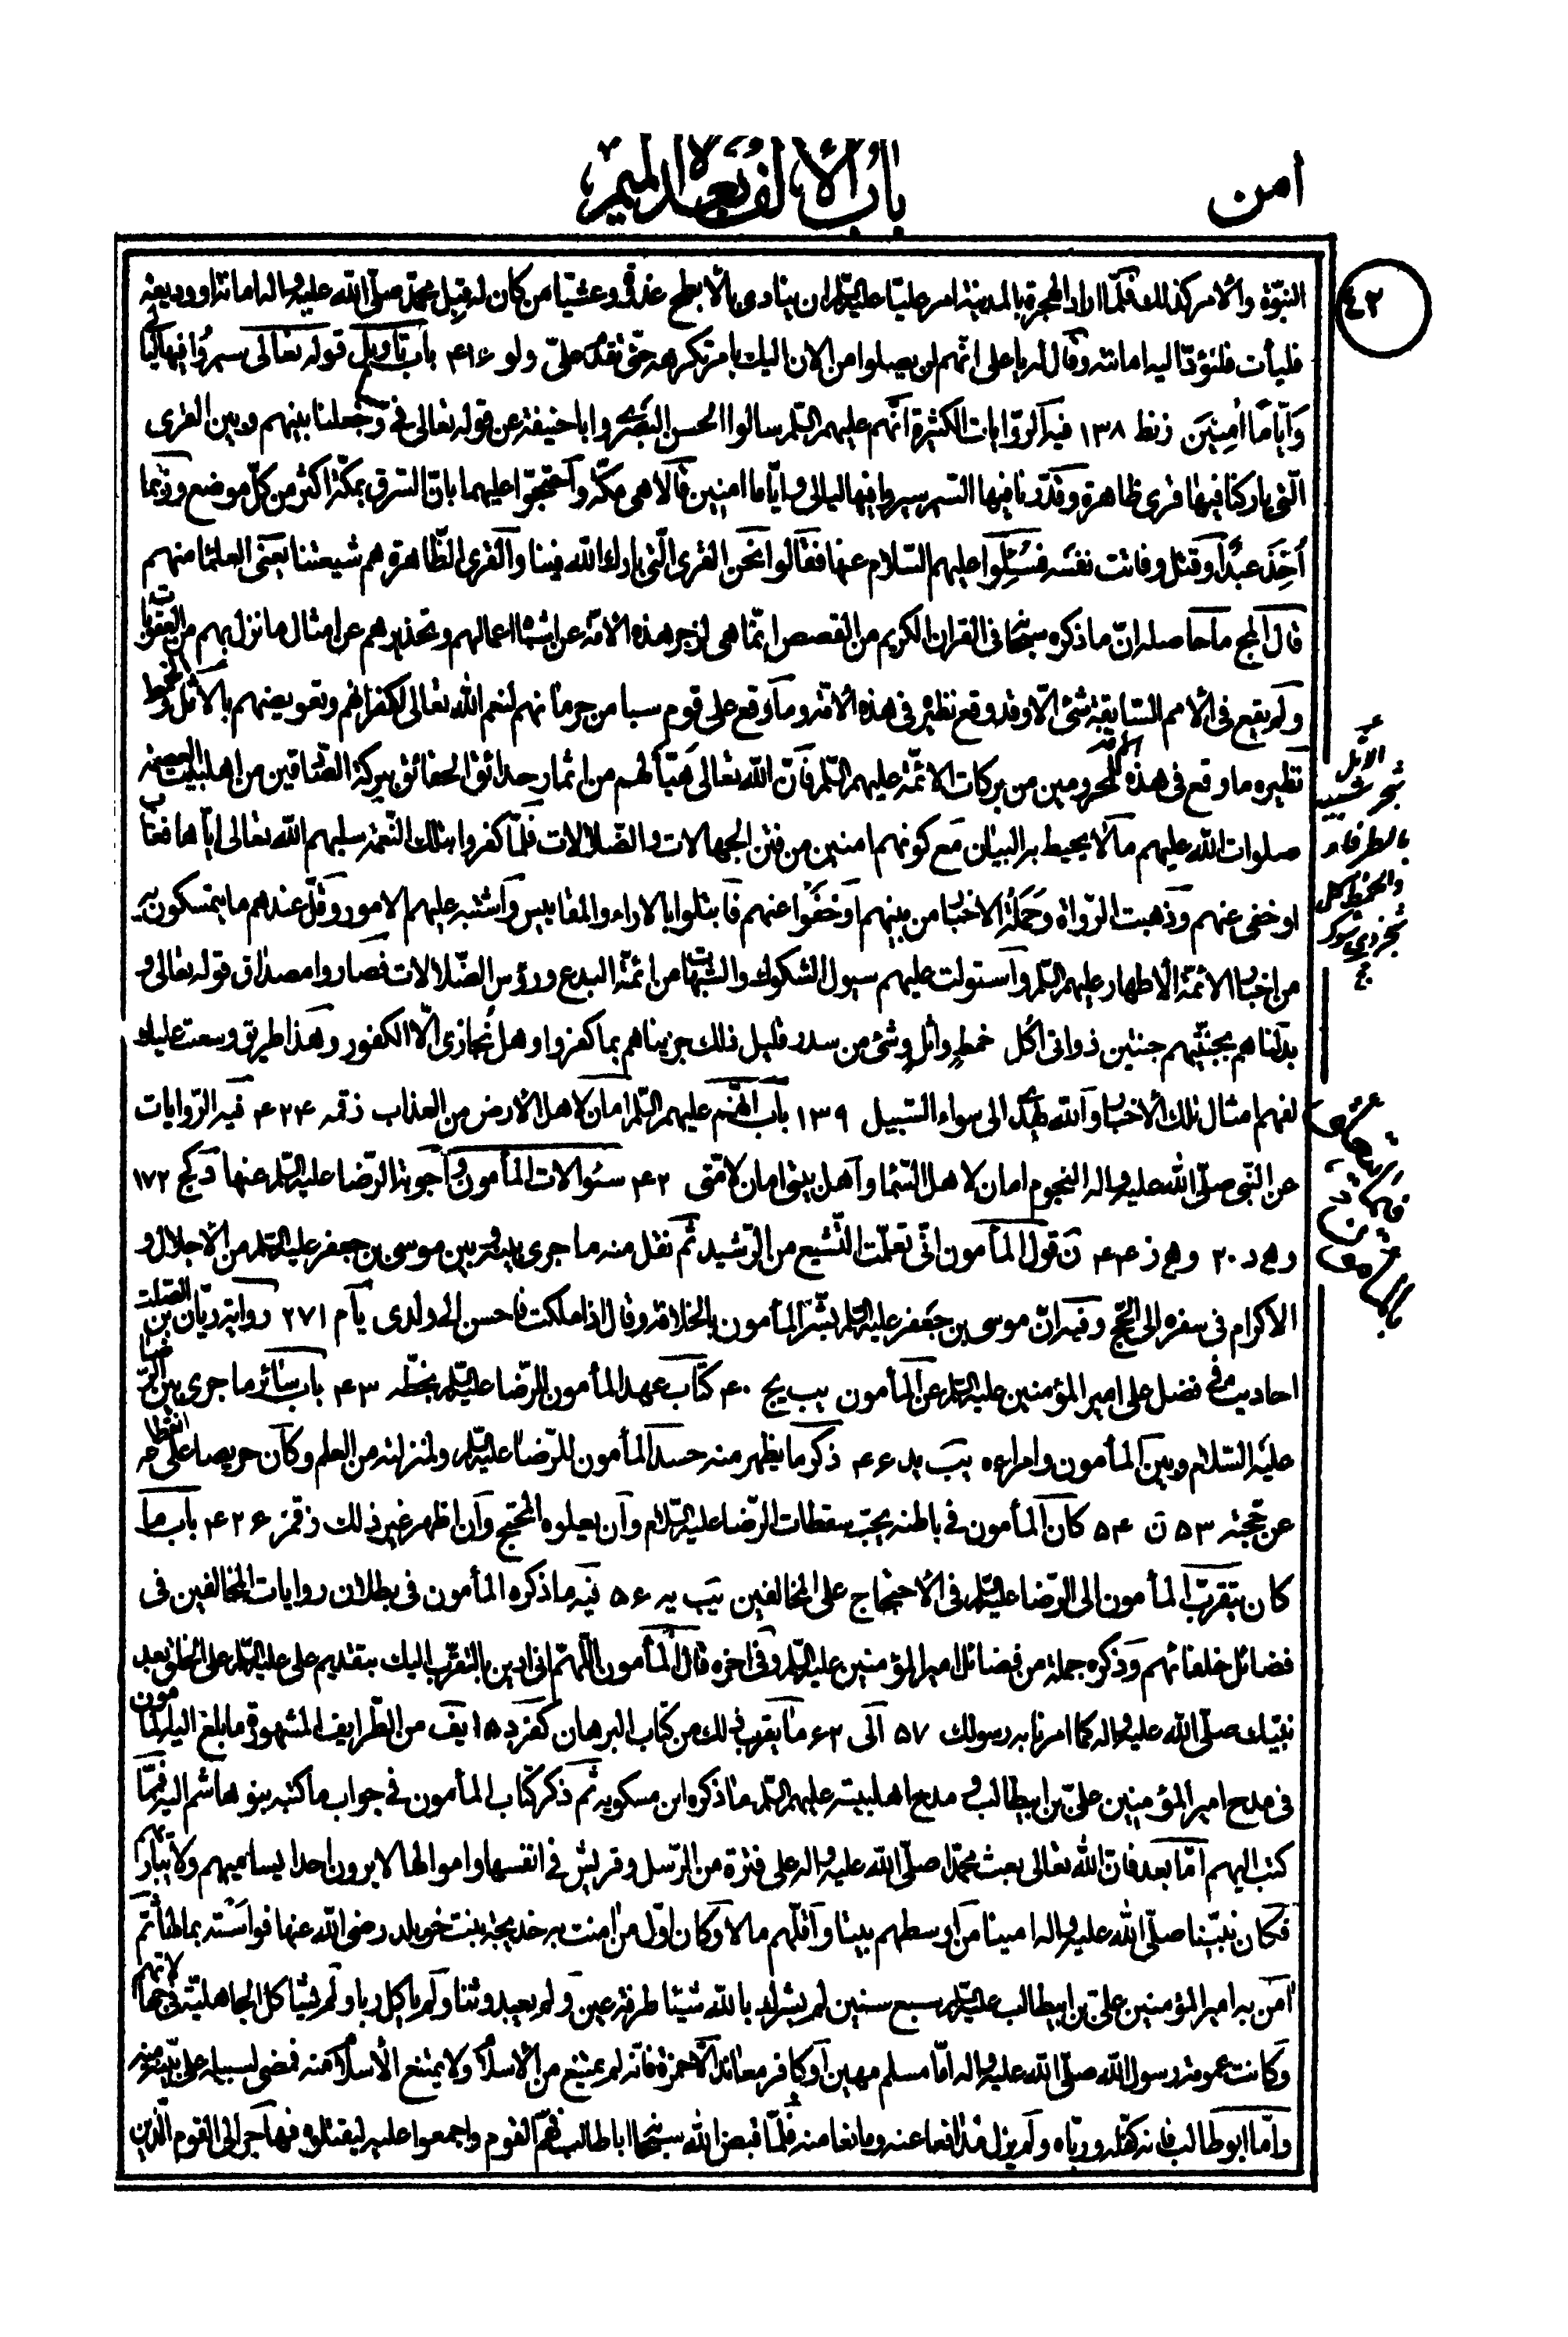 امن
باب الألف بعده الميم
٤٢
النبوّة والأمر كذلك فلمّا اراد الهجرة بالمدينة امر عليّا عليه السّلم ان ينادى بالأبطح غدوة وعشيّا من كان له قبل محمّد صلّى الله عليه واله امانة او وديعة
فليأت فلنؤدّ اليه امانته وقال له يا على انّهم لن يصلوا من الان اليك بامر تكرهه حتّى تقدم علىّ ولو ۴۱۶ باب تأويل قوله تعالى سيروا فيها ليالى
وايّاما امنين زنط ١٣٨ فيه الرّوايات الكثيرة انّهم عليهم السّلم سالوا الحسن البصرى وابا حنيفة عن قوله تعالى فى وجعلنا بينهم وبين القرى
الّتى باركنا فيها قرى ظاهرة وقدّرنا فيها السّير سيروا فيها ليالى وايّاما امنين قالا هى مكّة واحتجّوا عليهما بانّ السّرق بمكّة اكثر من كلّ موضع وربّما
اُخذ عبدٌ او قتل وفاتت نفسه فسُئلوا عليهم السّلام عنها فقالوا نحن القرى الّتى بارك الله فينا والقرى الظّاهرة هم شيعتنا يعنى العلماء منهم
قال المج ما حاصله انّ ما ذكره سبحانه فى القران الكريم من القصص انّما هى لزجر هذه الامّة عن اشباه اعمالهم وتحذيرهم عن امثال ما نزل بهم من العقوبات
ولم يقع فى الأمم السّابقة شئ الّا وقد وقع نظيره فى هذه الأمّة وما وقع على قوم سبا من حرمانهم لنعم الله تعالى لكفرانهم وتعويضهم بالأثل والخمط
نظيره ما وقع فى هذه الامّة المحرومين من بركات الائمّة عليهم السّلم فانّ الله تعالى هيّأ لهم من اثمار حدائق الحقائق ببركة الصّادقين من اهل البيت العصمة
صلوات الله عليهم مالا يحيط به البيان مع كونهم امنين من فتن الجهالات والضّلالات فلمّا كفروا بتلك النّعمة سلبهم الله تعالى ايّاها فغاب
او خفى عنهم وذهبت الرّواة وحملة الاخبار من بينهم او خفوا عنهم فابتلوا بالاراء والمقاييس واشتبه عليهم الامور وقلّ عندهم ما يتمسكون به
من اخبار الائمّة الأطهار عليهم السّلم واستولت عليهم سيول الشكوك والشبهات من ائمّة البدع ورؤس الضّلالات فصاروا مصداق قوله تعالى و
بدّلناهم بجنّتيهم جنتين ذواتى اكل خمطٍ واثلٍ وشئ من سدر قليل ذلك جزيناهم بما كفروا وهل نُجازى الّا الكفور وهذا طريق وسعت عليك
لفهم امثال تلك الأخبار والله يهدى الى سواء السّبيل ١٣٩ باب انّهم عليهم السّلم امان لاهل الأرض من العذاب زقمه ۴۲۴ فيه الرّوايات
عن النّبى صلّى الله عليه واله النجوم امان لاهل السّماء واهل بيتى امان لامّتى ۴۲ سئوالات المأمون واجوبة الرّضا عليه السّلم عنها دكج ١٧٢
وهج د ٢٠ وهج ز ۴۴ ن قول المأمون انّى تعلّمت التّشيّع من الرّشيد ثم نقل منه ما جرى بينه وبين موسى بن جعفر عليه السّلم من الأجلال و
الأكرام فى سفره الى الحجّ وفيه انّ موسى بن جعفر عليه السّلم بشّر المأمون بالخلافة وقال اذا ملكت فاحسن الى ولدى يأم ٢٧١ رواية ريّان بن الصّلت
احاديث فى فضل على امير المؤمنين عليه السّلم عن المأمون يب يج ۴۰ كتاب عهد المأمون للرّضا عليه السّلم بخطّه ۴۳ باب سائر ما جرى بين الرّضا
عليه السّلام وبين المأمون وامراءه يب يد ۴۶ ذكر ما يظهر منه حسد المأمون للرّضا عليه السّلم ولمنزلته من العلم وكان حريصا على انقطاعه
عن حجّته ۵۳ ن ۵۴ كان المأمون فى باطنه يحبّ سقطات الرّضا عليه السّلام وان يعلوه المحتج وان اظهر غير ذلك زقمز ۴۲۶ باب ما
كان يتقرّب المأمون الى الرّضا عليه السّلم فى الأحتجاج على المخالفين يب يه ۵۶ فيه ما ذكره المأمون فى بطلان روايات المخالفين فى
فضائل خلفائهم وذكره جملة من فضائل امير المؤمنين عليه السّلم وفى اخره قال المأمون اللّهمّ انى ادين بالتقرّب اليك بتقديم على عليه السّلم على الخلق بعد
نبيّك صلّى الله عليه واله كما امرنا به رسولك ۵۷ الى ۶۲ ما يقرب ذلك من كتاب البرهان كفرد ۱۵ يف من الطّرايف المشهورة ما بلغ اليه المأمون
فى مدح امير المؤمنين علىّ بن ابيطالب ومدح اهل بيته عليهم السّلم ما ذكره ابن مسكويه ثم ذكر كتاب المأمون فى جواب ما كتبه بنو هاشم اليه فممّا
كتب اليهم امّا بعد فانّ الله تعالى بعث محمّدا صلّى الله عليه واله على فترة من الرّسل وقريش فى انفسها واموالها لا يرون احدا يساميهم ولا يباريهم
فكان نبيّنا صلّى الله عليه واله امينا من اوسطهم بيتا واقلّهم مالا وكان اوّل من امنت به خديجة بنت خويلد رضى الله عنها فواسته بمالها ثمّ
امن به امير المؤمنين علىّ بن ابيطالب عليه السّلم سبع سنين لم يشرك بالله شيئا طرفة عين ولم يعبد وثنا ولم يأكل ربا ولم يشاكل الجاهليّة فى جهالاتهم
وكانت عمومة رسول الله صلّى الله عليه واله امّا مسلم مهين او كافر معاند الّا حمزة فانّه لم يمتنع من الأسلام ولا يمتنع الأسلام منه فمضى لسبيله على بيّنة من ربّه
وامّا ابو طالب فانه كفّله وربّاه ولم يزل مدافعا عنه ومانعا منه فلمّا قبض الله سبحانه ابا طالب همّ القوم واجمعوا عليه ليقتلوه فهاجر الى القوم الّذين
الاثل
شجر شبيه
بالطرفاء
والخمط كل
شجر ذى شوك